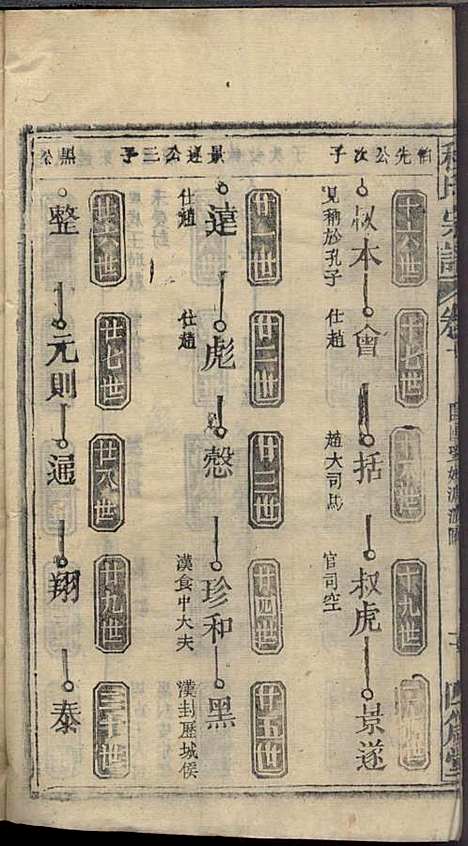 程氏宗譜 卷
伯先公次子
十六世
十七世
十九世
叔本 會 括 叔虎 景遂
見稱於孔子
仕趙
趙大司馬
官司空
景遂公三子
廿一世
廿二世
廿三世
廿四世
廿五世
逵 彪 愨 珍和 黑
仕趙
仕趙
漢食中大夫
漢封歷城侯
黑公
廿六世
廿七世
廿八世
廿九世
三十世
整 元則 逼 翔 泰